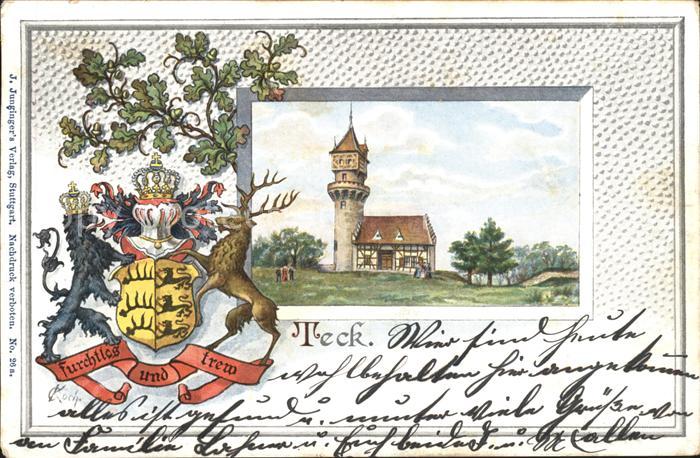 J. Junginger's Verlag, Stuttgart. Nachdruck verboten. No. 26a.
furchtlos und trew
Koch.
Teck. Wir sind heute
wohlbehalten hier angekommen
alles ist gesund u. munter viele Grüße von
an Familie u. Euch beide u. allen